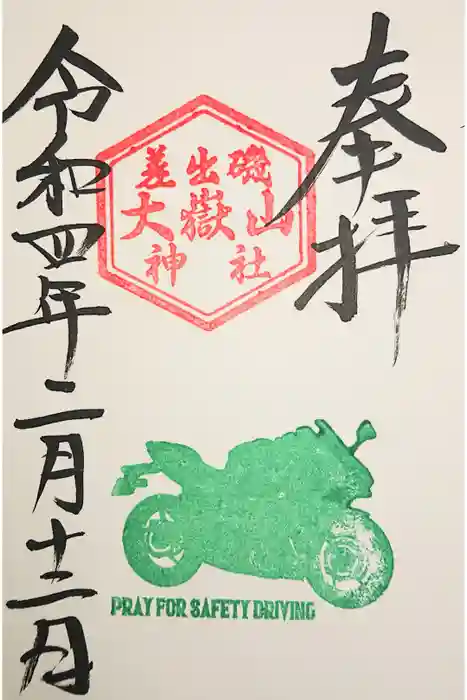 奉拝
差出磯
大嶽山
神社
令和四年二月十二日
PRAY FOR SAFETY DRIVING